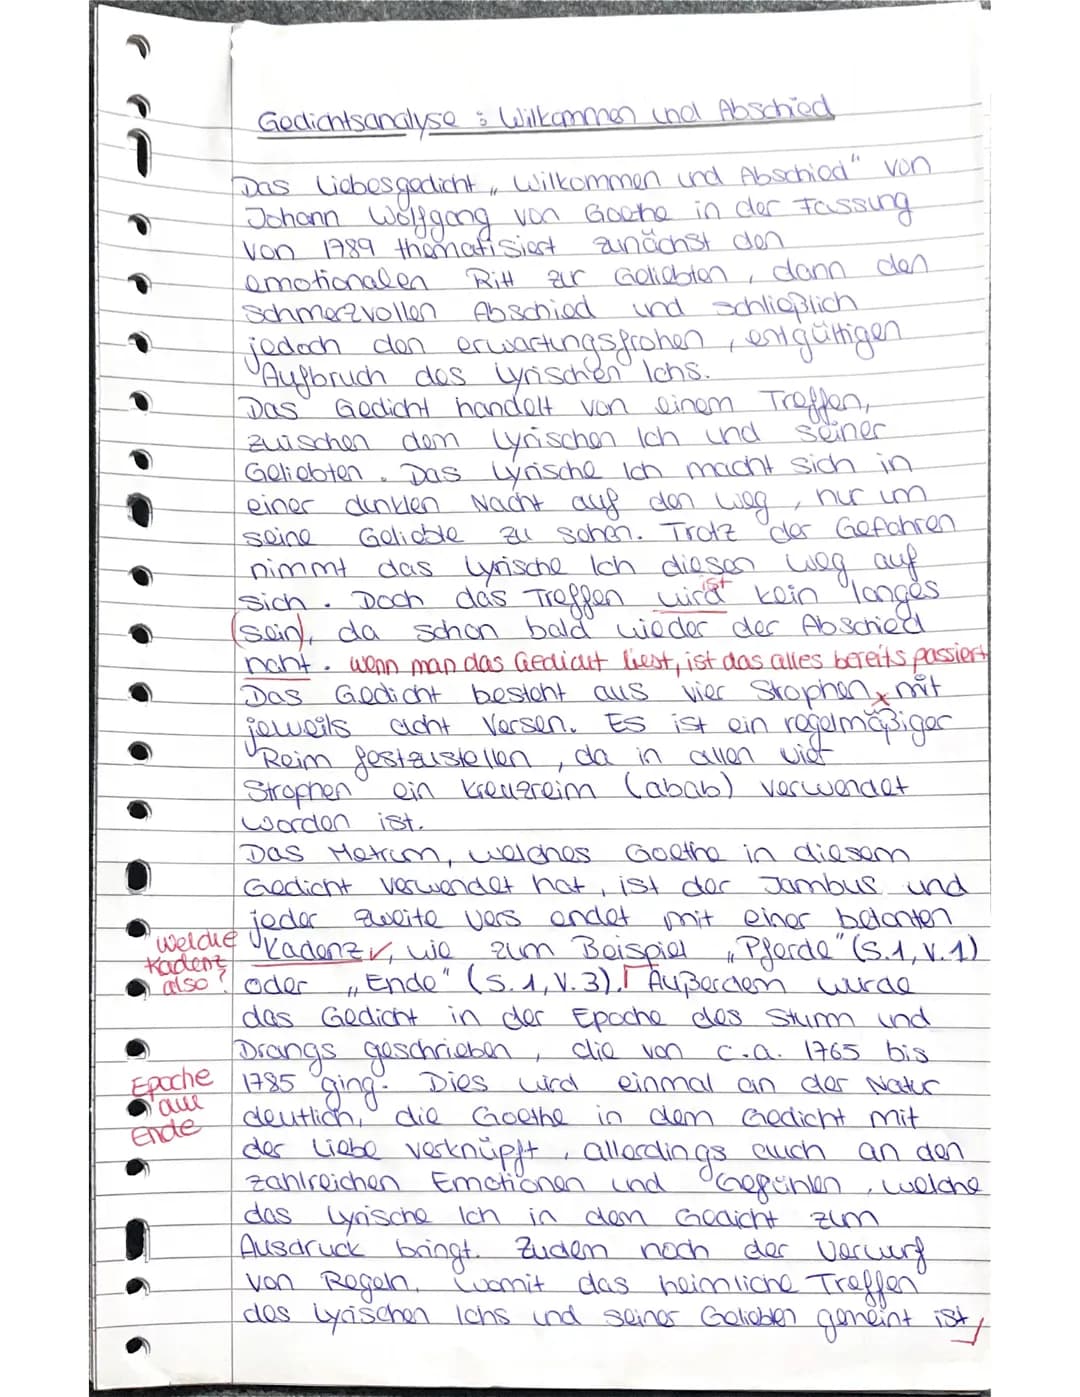 Gedichtsanalyse : Wilkommen und Abschied
Das Liebesgedicht „Wilkommen und Abschied" von
Johann Wolfgang von Goethe in der Fassung
von 1789 thematisiert zunächst den
emotionalen Ritt zur Geliebten, dann den
schmerzvollen Abschied und schließlich
jedoch den erwartungsfrohen, entgültigen
Aufbruch des lyrischen Ichs.
Das Gedicht handelt von einem Treffen,
zwischen dem lyrischen Ich und seiner
Geliebten. Das lyrische Ich macht sich in
einer dunklen Nacht auf den Weg, nur um
seine Geliebte zu sehen. Trotz der Gefahren
nimmt das lyrische Ich diesen Weg auf
ist
sich. Doch das Treffen wird kein langes
(sein), da schon bald wieder der Abschied
naht. wenn man das Gedicht liest, ist das alles bereits passiert
Das Gedicht besteht aus vier Strophen, mit
jeweils acht Versen. Es ist ein regelmäßiger
Reim festzustellen, da in allen vier
Strophen ein Kreuzreim (abab) verwendet
worden ist.
Das Metrum, welches Goethe in diesem
Gedicht verwendet hat, ist der Jambus und
jeder zweite Vers endet mit einer betonten
welche Kadenz also?
Kadenz ✓, wie zum Beispiel „Pferde" (S.1, V.1)
oder „Ende" (S.1, V.3). Außerdem wurde
das Gedicht in der Epoche des Sturm und
Drangs geschrieben, die von c.a. 1765 bis
Epoche am Ende
1785 ging. Dies wird einmal an der Natur
deutlich, die Goethe in dem Gedicht mit
der Liebe verknüpft, allerdings auch an den
zahlreichen Emotionen und Gefühlen, welche
das lyrische Ich in dem Gedicht zum
Ausdruck bringt. Zudem noch der Verwurf
von Regeln, womit das heimliche Treffen
des lyrischen Ichs und seiner Gelieben gemeint ist